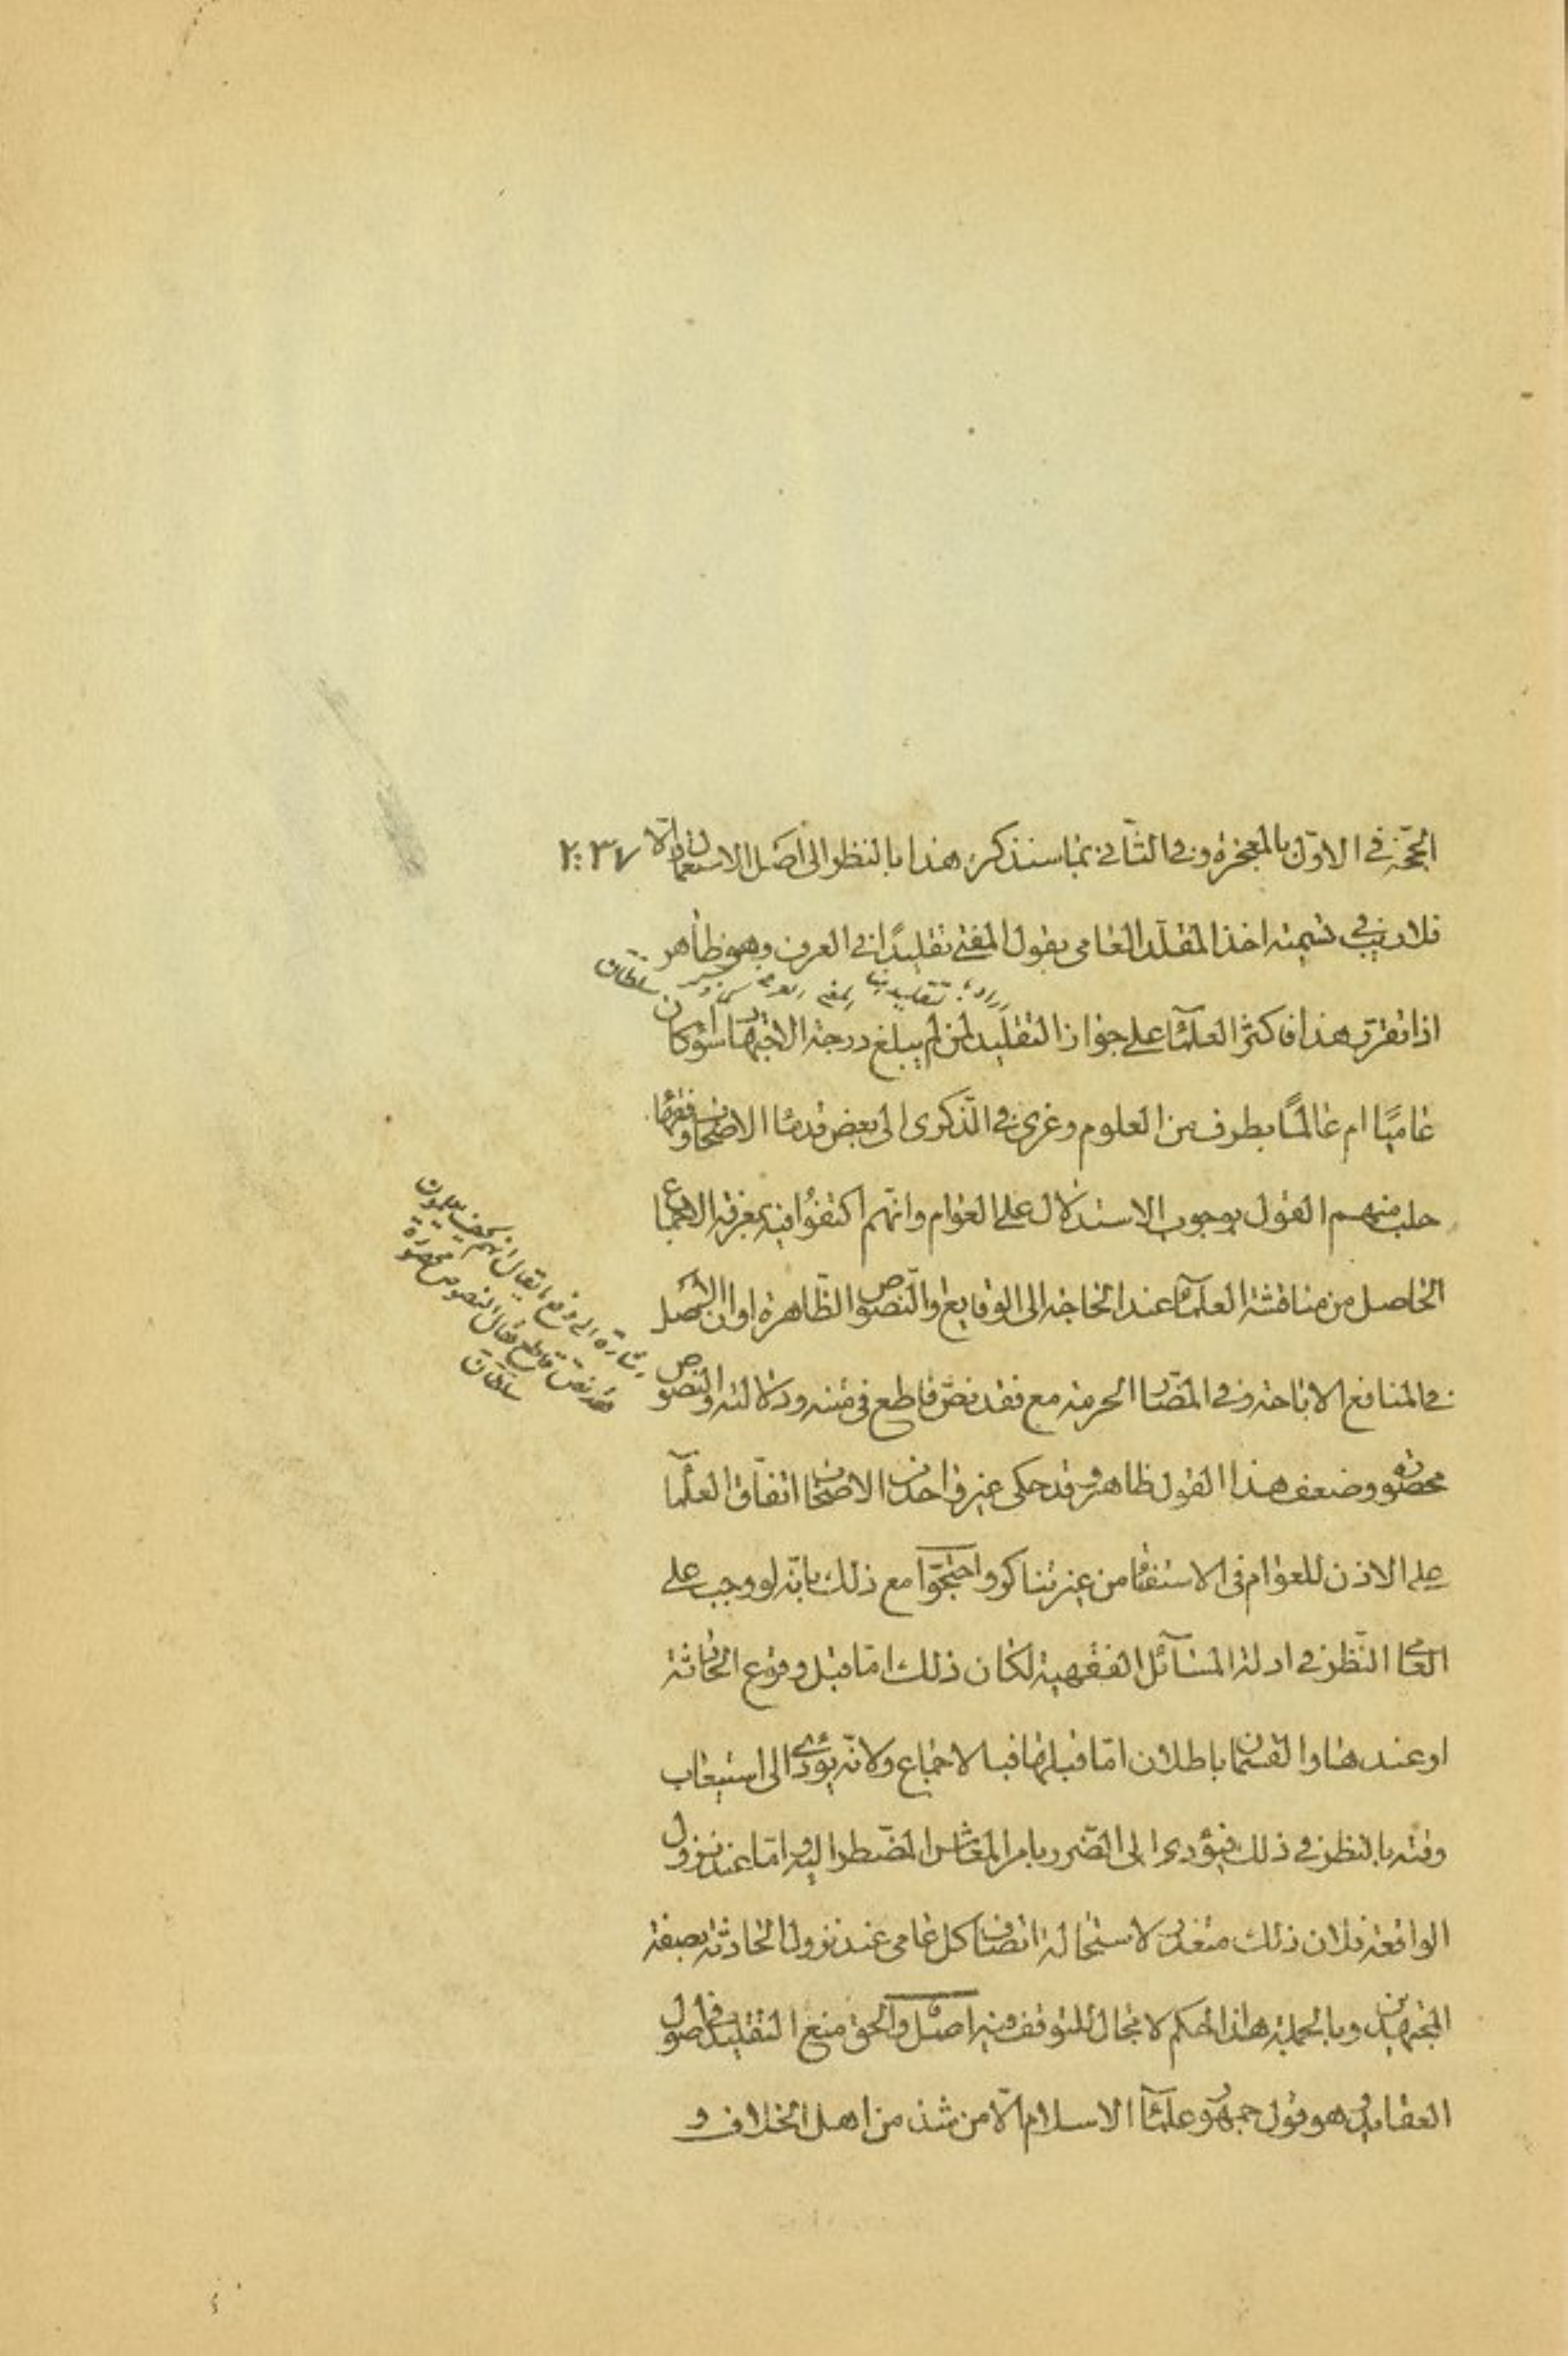 الحجّة في الاوّل بالمعجزة وفي الثّاني بما سنذكره هذا بالنظر الى اصل الاستعمال والّا
فلا ريب في تسميته اخذ المقلّد العامي بقول المفتي تقليدًا في العرف وهو ظاهر
اذا تقرّر هذا فاكثر العلمآء على جواز التقليد لمن لم يبلغ درجة الاجتهاد سواء كان
عاميًّا ام عالمًا بطرف من العلوم وعزى في الذّكرى الى بعض قدماء الاصحاب وفقهاء
حلب منهم القول بوجوب الاستدلال على العوام وانّهم اكتفوا فيه بمعرفة الاجماع
الحاصل من مناقشة العلمآء عند الحاجة الى الوقايع والنّصوص الظّاهرة او ان الاصل
في المنافع الاباحة وفي المضّار الحرمة مع فقد نصّ قاطع في متنه ودلالته والنصوص
محصورة وضعف هذا القول ظاهر وقد حكى غير واحد من الاصحاب اتفاق العلمآء
على الاذن للعوام في الاستفتاء من غير تناكر واحتجّوا مع ذلك بانّه لو وجب على
العامي النّظر في ادلة المسآئل الفقهية لكان ذلك امّا قبل وقوع الحادثة
او عندها والقسمان باطلان امّا قبلها فبالاجماع ولانّه يؤدّي الى استيعاب
وقته بالنظر في ذلك فيؤدي الى الضّرر بامر المعاش المضطر اليه وامّا عند نزول
الواقعة فلان ذلك متعذر لاستحالة اتصاف كل عامي عند نزول الحادثة بصفة
المجتهدين وبالجملة هذا الحكم لا مجال للتوقف فيه اصل والحق منع التقليد في اصول
العقايد وهو قول جمهور علمآء الاسلام الّا من شذ من اهل الخلاف و
سلطان
اشارة الى دفع
فقد نصّ قاطع فقال النصوص محصورة
سلطان